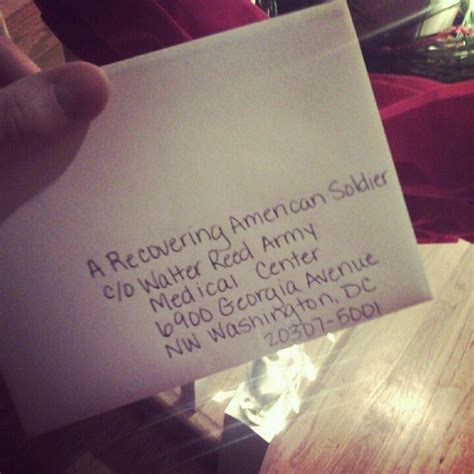 A Recovering American Soldier
c/o Walter Reed Army
Medical Center
6900 Georgia Avenue
NW Washington, DC
20307-5001